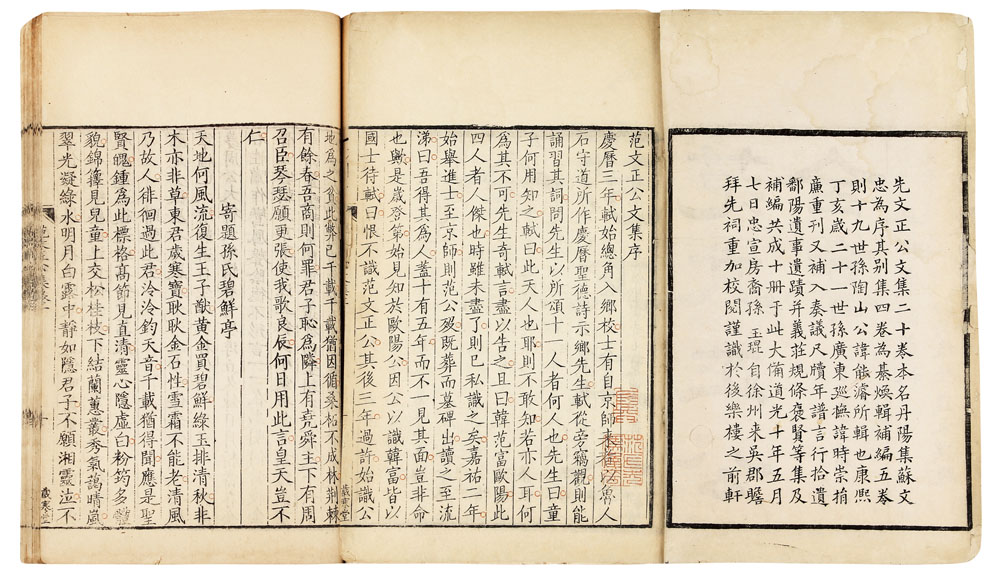 先文正公文集二十卷本名丹陽集蘇文
忠為序其别集四卷為綦煥輯補編五卷
則十九世孫陶山公諱能濬所輯也康熙
丁亥歲二十一世孫廣東巡撫諱時崇捐
廉重刊又補入奏議尺牘年譜言行拾遺
鄱陽遺事遺蹟并義莊規條褒賢等集及
補編共成十册于此大備道光十年五月
七日忠宣房裔孫 玉琨自徐州来吳郡瞻
拜先祠重加校閱謹識於後樂樓之前軒
范文正公文集序
慶曆三年軾始總角入鄉校士有自京師来者以魯人
石守道所作慶曆聖德詩示鄉先生軾從旁竊觀則能
誦習其詞問先生以所頌十一人者何人也先生曰童
子何用知之軾曰此天人也耶則不敢知若亦人耳何
為其不可先生奇軾言盡以告之且曰韓范富歐陽此
四人者人傑也時雖未盡了則已私識之矣嘉祐二年
始舉進士至京師則范公歿既葬而墓碑出讀之至流
涕曰吾得其為人蓋十有五年而不一見其面豈非命
也歟是歲登第始見知於歐陽公因公以識韓富皆以
國士待軾曰恨不識范文正公其後三年過許始識公
地為之負此弊已千載千載猶因循桑柘不成林荆棘
有餘春吾商則何罪君子恥為隣上有堯舜主下有周
召臣琴瑟願更張使我歌良辰何日用此言皇天豈不
仁
寄題孫氏碧鮮亭
天地何風流復生王子猷黄金買碧鮮綠玉排清秋非
木亦非草東君歲寒寶耿耿金石性雪霜不能老清風
乃故人徘徊過此君泠泠鈞天音千載猶得聞應是聖
賢魄鍾為此標格高節見直清靈心隱虚白粉筠多體
貌錦籜見兒童上交松桂枝下結蘭蕙叢秀氣藹晴嵐
翠光凝綠水明月白露中靜如隱君子不願湘靈泣不
歲寒堂